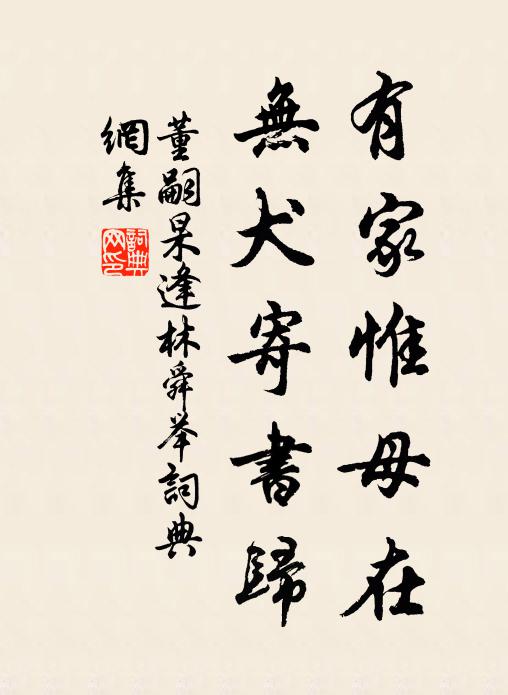 有家惟母在
無犬寄書歸
董嗣杲逢林舜举詞典
網集
詞典
网印